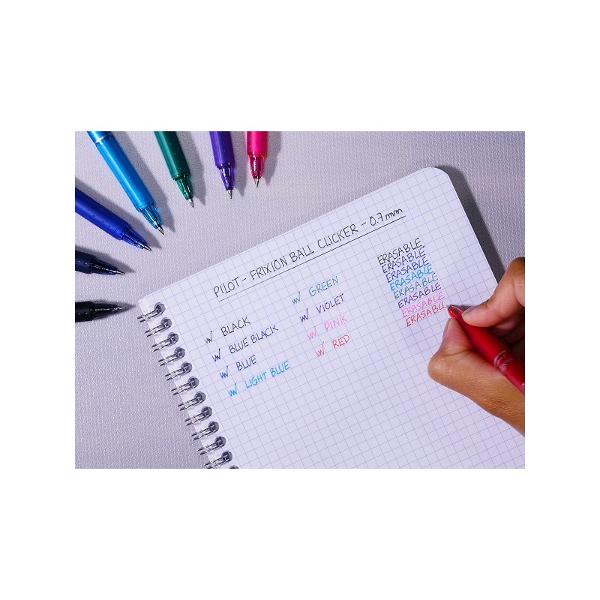 PILOT - FRIXION BALL CLICKER - 0.7mm
BLACK
BLUE BLACK
BLUE
LIGHT BLUE
GREEN
VIOLET
PINK
RED
ERASABLE
ERASABLE
ERASABLE
ERASABLE
ERASABLE
ERASABLE
ERASABL